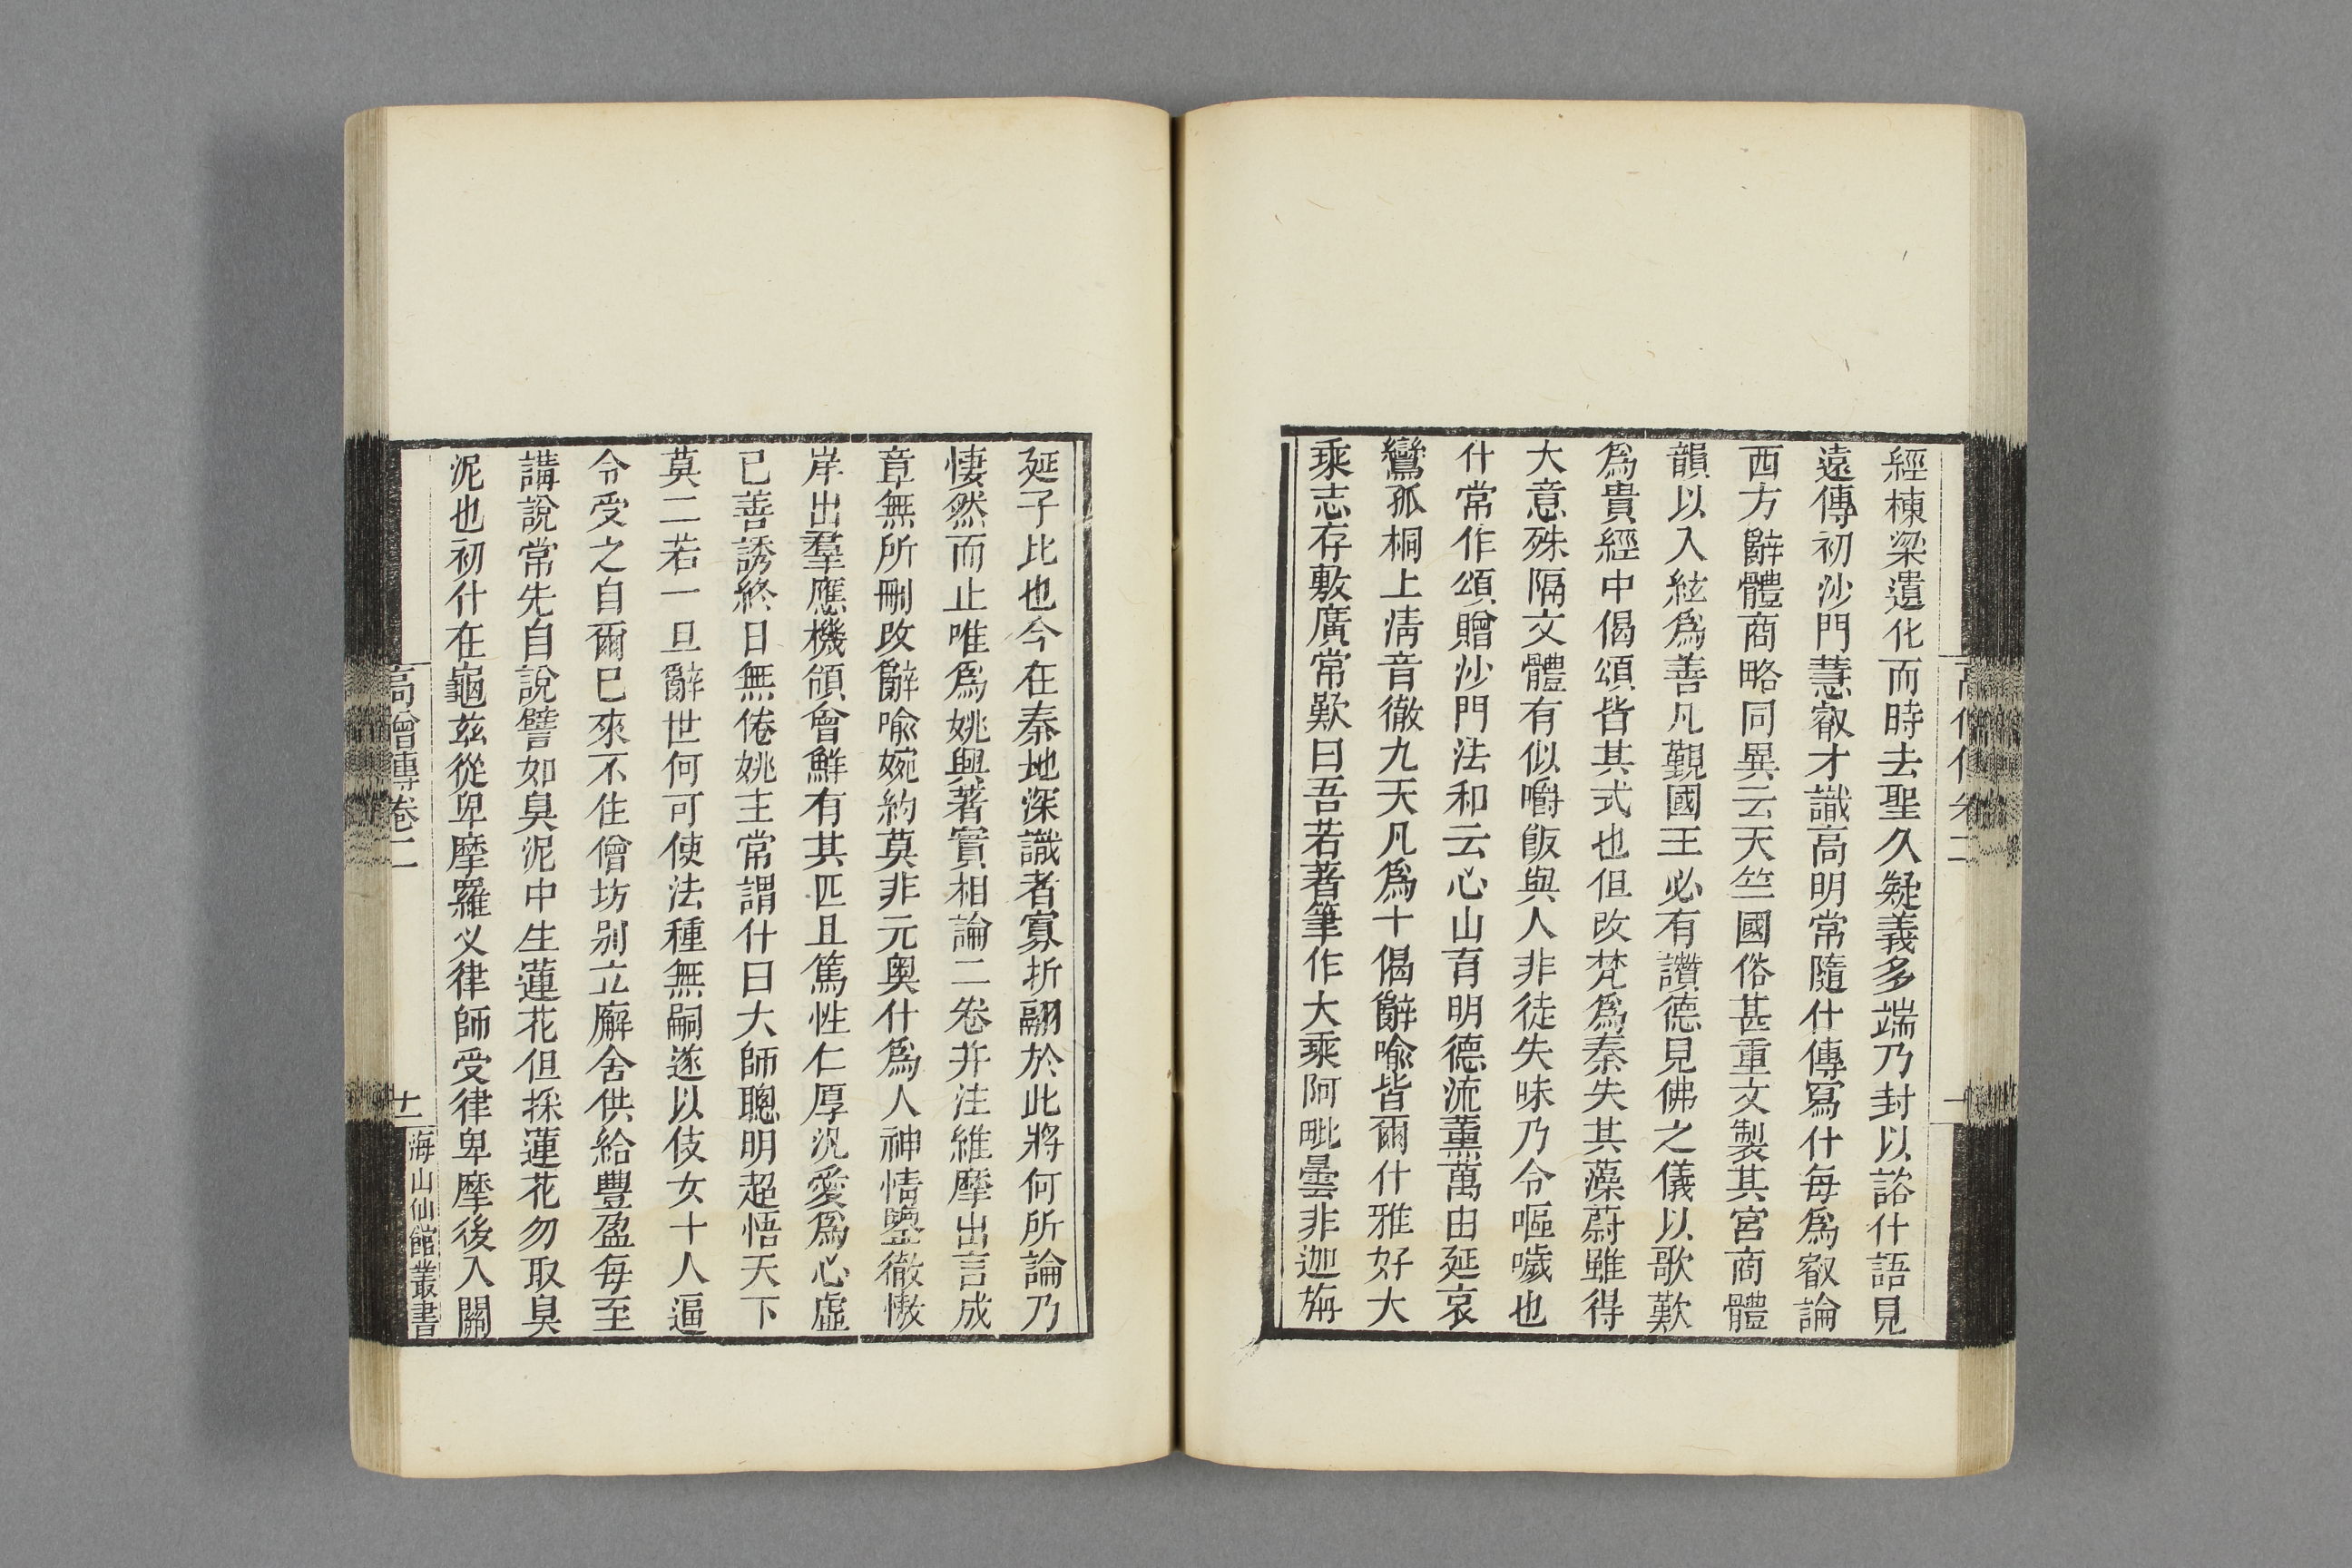 經棟梁遺化而時去聖久疑義多端乃封以諮什語見
遠傳初沙門慧叡才識高明常隨什傳寫什每爲叡論
西方辭體商略同異云天竺國俗甚重文製其宮商體
韻以入絃爲善凡覲國王必有讚德見佛之儀以歌歎
爲貴經中偈頌皆其式也但改梵爲秦失其藻蔚雖得
大意殊隔文體有似嚼飯與人非徒失味乃令嘔噦也
什常作頌贈沙門法和云心山育明德流薰萬由延哀
鸞孤桐上淸音徹九天凡爲十偈辭喩皆爾什雅好大
乘志存敷廣常歎曰吾若著筆作大乘阿毗曇非迦旃
延子比也今在秦地深識者寡折翮於此將何所論乃
悽然而止唯爲姚興著實相論二卷并注維摩出言成
章無所刪改辭喩婉約莫非元奧什爲人神情鑒徹慠
岸出羣應機領會鮮有其匹且篤性仁厚汎愛爲心虛
已善誘終日無倦姚主常謂什曰大師聰明超悟天下
莫二若一旦辭世何可使法種無嗣遂以伎女十人逼
令受之自爾已來不住僧坊别立廨舍供給豐盈每至
講說常先自說譬如臭泥中生蓮花但採蓮花勿取臭
泥也初什在龜兹從卑摩羅义律師受律卑摩後入關
高僧傳卷二
十一
海山仙館叢書